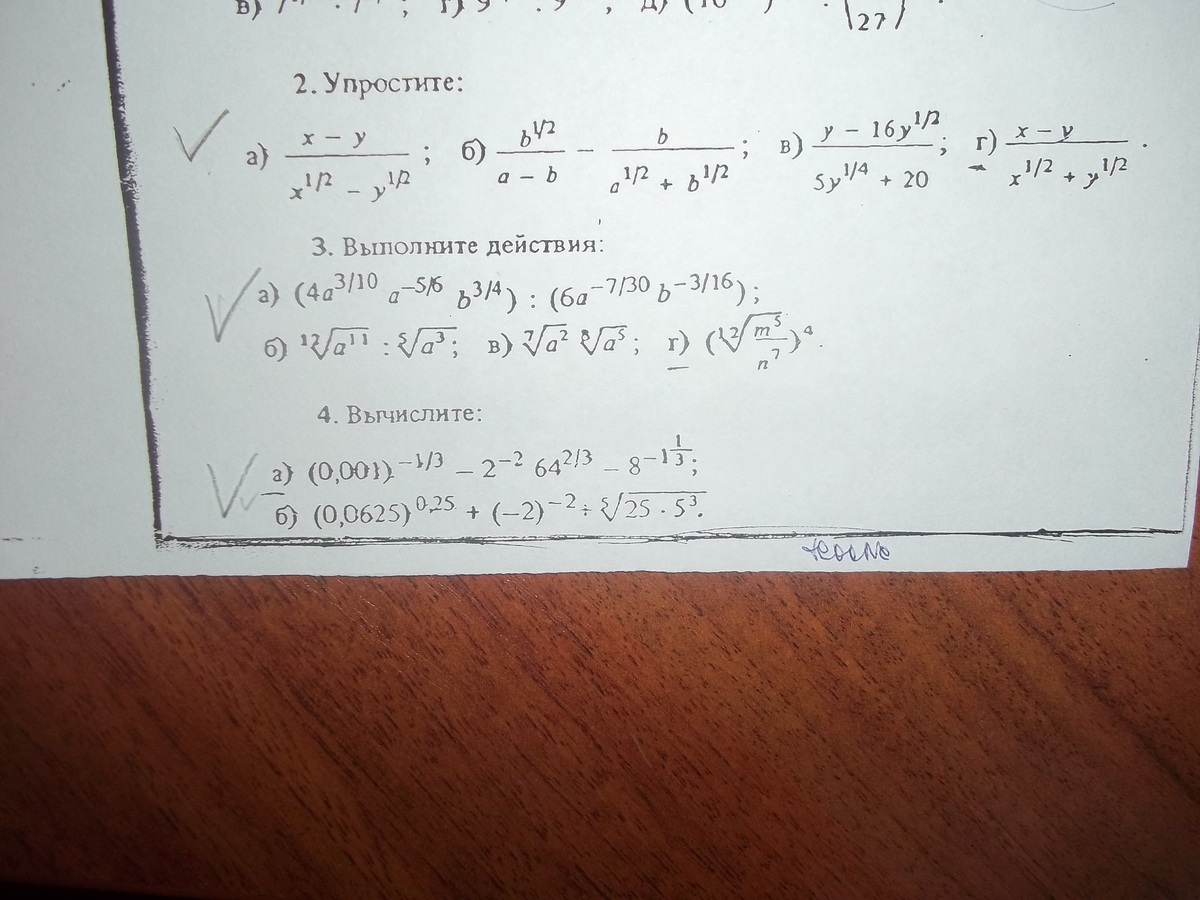 2. Упростите:
а) (x − y)/(x^{1/2} − y^{1/2}); б) b^{1/2}/(a − b) − b/(a^{1/2} + b^{1/2}); в) (y − 16y^{1/2})/(5y^{1/4} + 20); г) (x − y)/(x^{1/2} + y^{1/2}).
3. Выполните действия:
а) (4a^{3/10} a^{−5/6} b^{3/4}) : (6a^{−7/30} b^{−3/16});
б) ¹²√a^{11} : ⁵√a^{3}; в) ⁷√a^{2} ⁸√a^{5}; г) (¹²√(m^{5}/n^{7}))^{4}.
4. Вычислите:
а) (0,001)^{−1/3} − 2^{−2} 64^{2/3} − 8^{−1 1/3};
б) (0,0625)^{0,25} + (−2)^{−2} ÷ ⁵√(25 · 5^{3}).